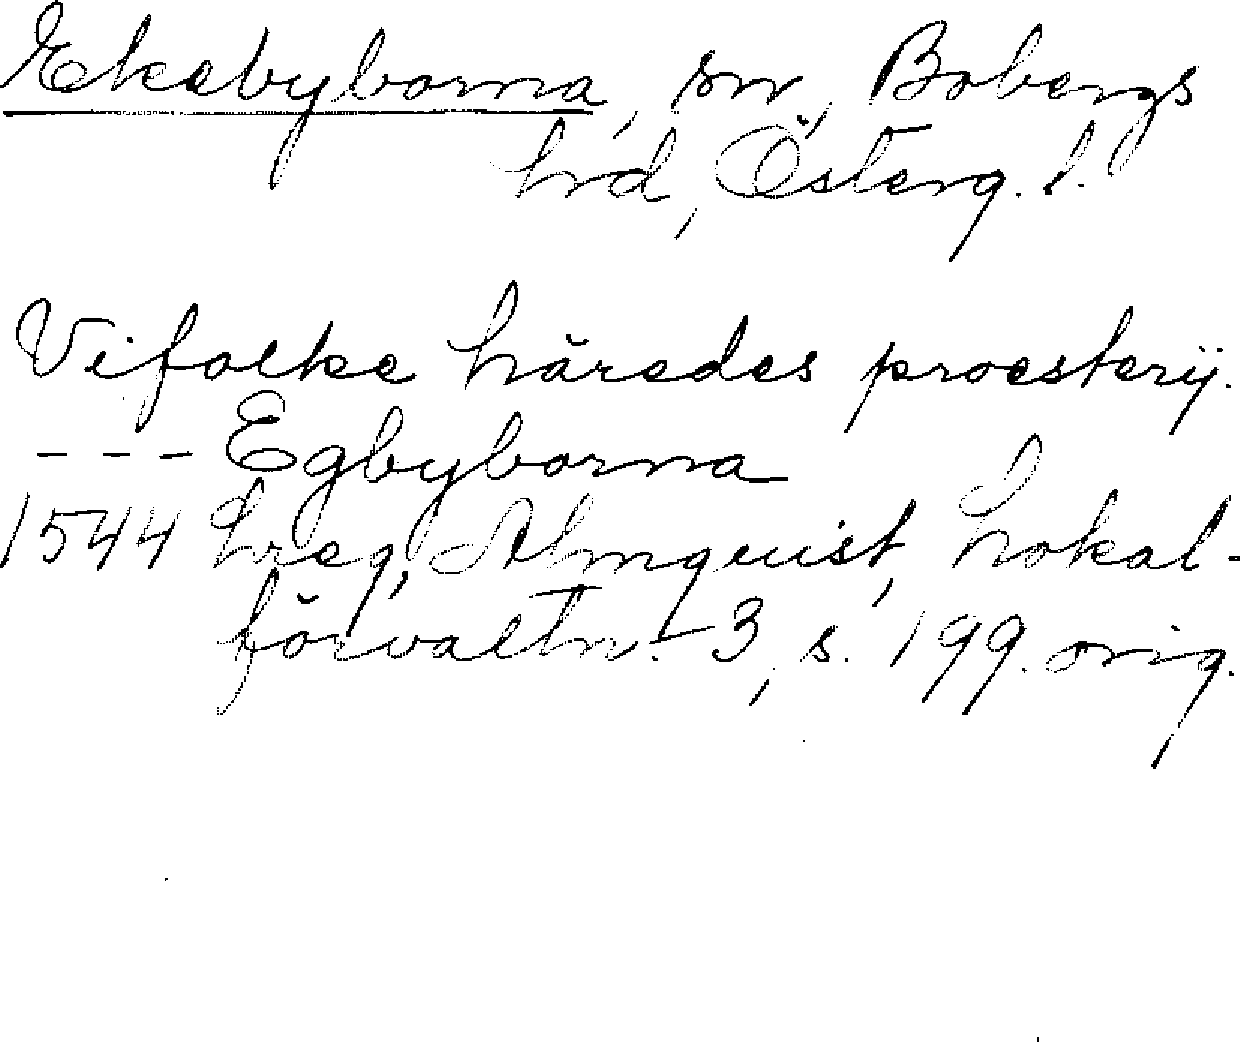 Ekebyborna, sn, Bobergs
hrd, Österg. l.
Vifolke häredes proesterij.
--- Egbyborna
1544 Lreg, Almquist, Lokal-
förvaltn. 3, s. 199. orig.